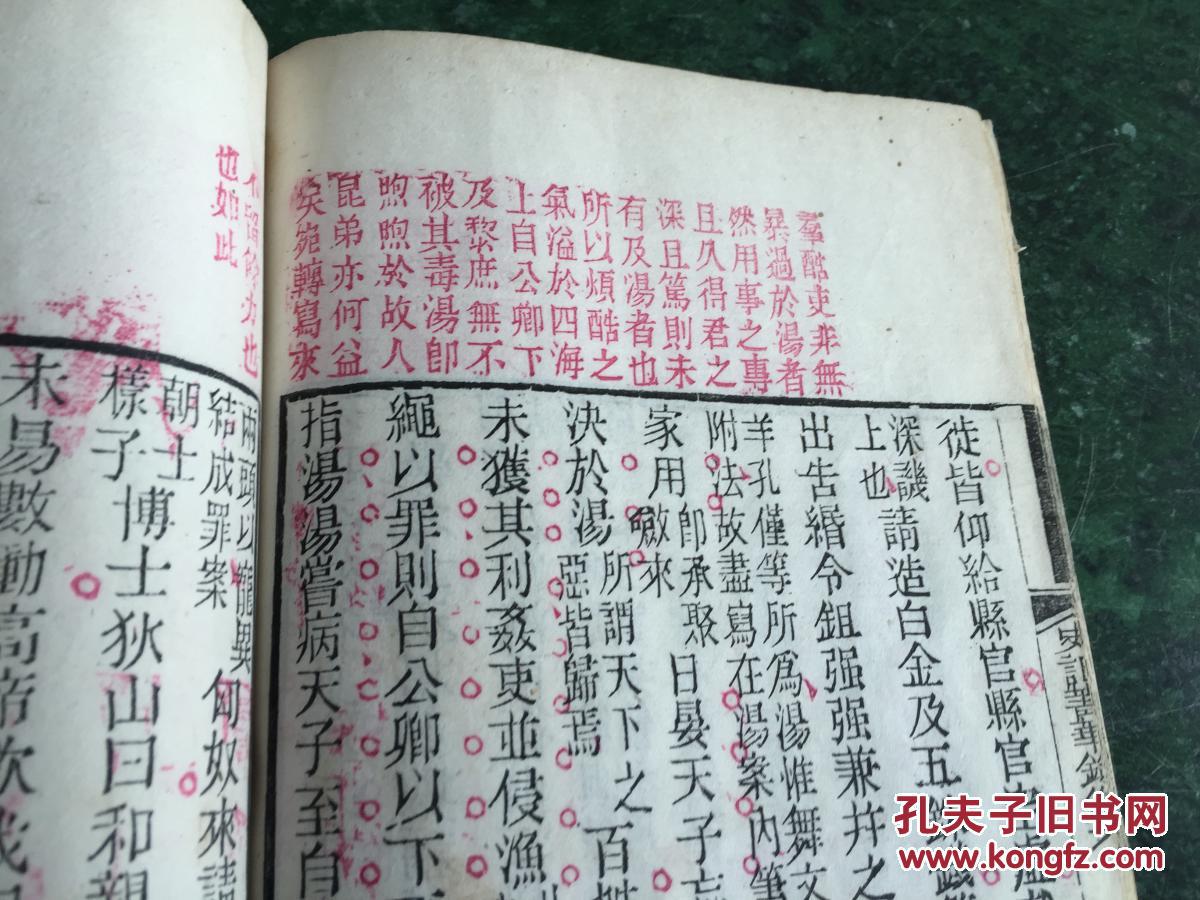 羣酷吏非無
暴過於湯者
然用事之專
且久得君之
深且篤則未
有及湯者也
所以煩酷之
氣溢於四海
上自公卿下
及黎庶無不
被其毒湯卽
煦煦於故人
昆弟亦何益
矣宛轉寫來
徒皆仰給縣官縣官
深譏請造白金及五
上也
出吿緡令鉏强强兼幷之
羊孔僅等所爲湯惟舞文
附法故盡寫在湯案內筆
家用
卽承聚
斂來
日晏天子忘
決於湯
所謂天下之
惡皆歸焉
百姓
未獲其利姦吏並侵漁
繩以罪則自公卿以下
指湯湯嘗病天子至自
力也
也如此
兩頭以寵異
結成罪案
匈奴來請
朝士
樣子
博士狄山曰和親
未易數動高帝欲伐
史記菁華錄
孔夫子旧书网
www.kongfz.com